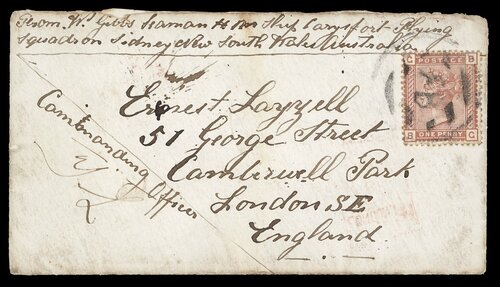 From Wm Gibbs Seaman HM Ship Carysfort Flying
Squadron Sidney New South Wales Australia
Ernest Layzell
51 George Street
Camberwell Park
London SE
England
Commanding
Officer
C POSTAGE B
B ONE PENNY C